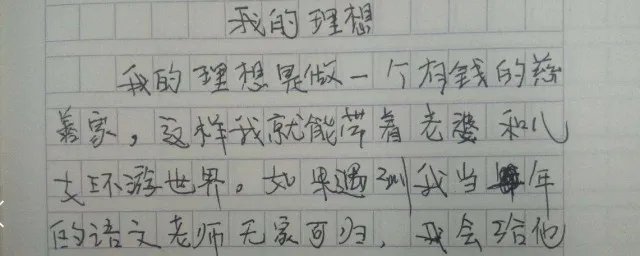 我的理想
我的理想是做一个有钱的慈
善家，这样我就能带着老婆和儿
女环游世界。如果遇到我当年
的语文老师无家可归，我会给他